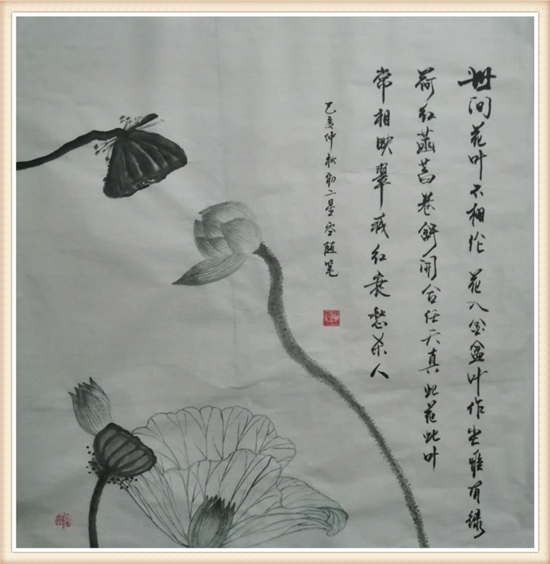 世间花叶不相伦花入金盆叶作尘唯有绿
荷红菡萏卷舒开合任天真此花此叶
常相映翠减红衰愁杀人
己亥仲秋初二星空随笔